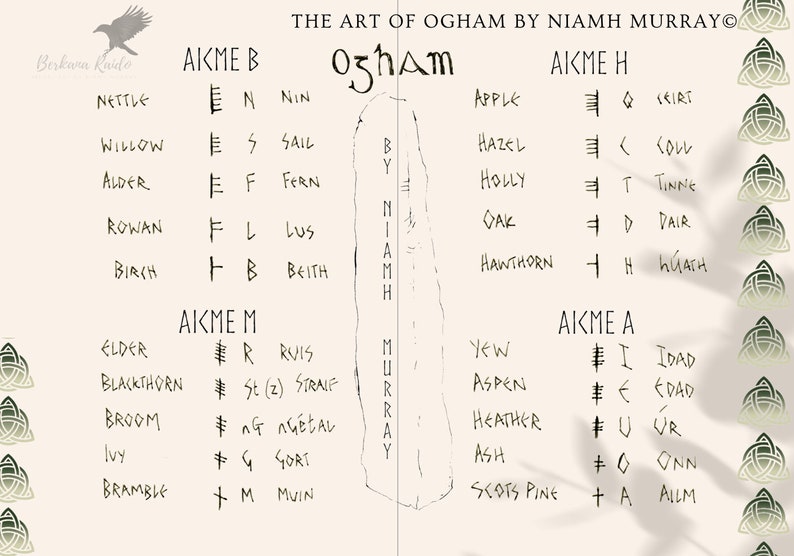 THE ART OF OGHAM BY NIAMH MURRAY©
Berkana Raido
OghAM
BY NIAMH MURRAY
AICME B
NETTLE N NIN
WILLOW S SAIL
ALDER F FERN
ROWAN L LUS
BIRCH B BEITH
AICME H
APPLE Q CEIRT
HAZEL C COLL
HOLLY T TINNE
OAK D DAIR
HAWTHORN H hÚATH
AICME M
ELDER R RUIS
BLACKTHORN St (z) STRAIF
BROOM nG nGÉTAL
IVY G GORT
BRAMBLE M MUIN
AICME A
YEW I IDAD
ASPEN E EDAD
HEATHER U ÚR
ASH O ONN
SCOTS PINE A AILM